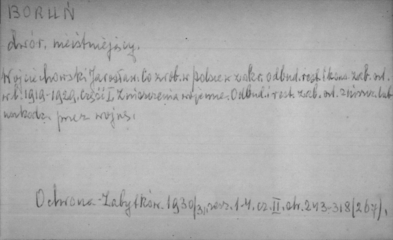 BORUŃ
dwór, nieistniejący.
Wojciechowski Jarosław. Co zrob. w polsce w zakr. odbud. rest. i kons. zab. od.
w l. 1919-1929. Część I. Zniszczenia wojenne. Odbud. i rest. zab. od. zniszcz. lub
uszkodz. przez wojnę.
Ochrona Zabytków. 1930/31, zesz. 1-4. cz. II. str. 243-318 (267).